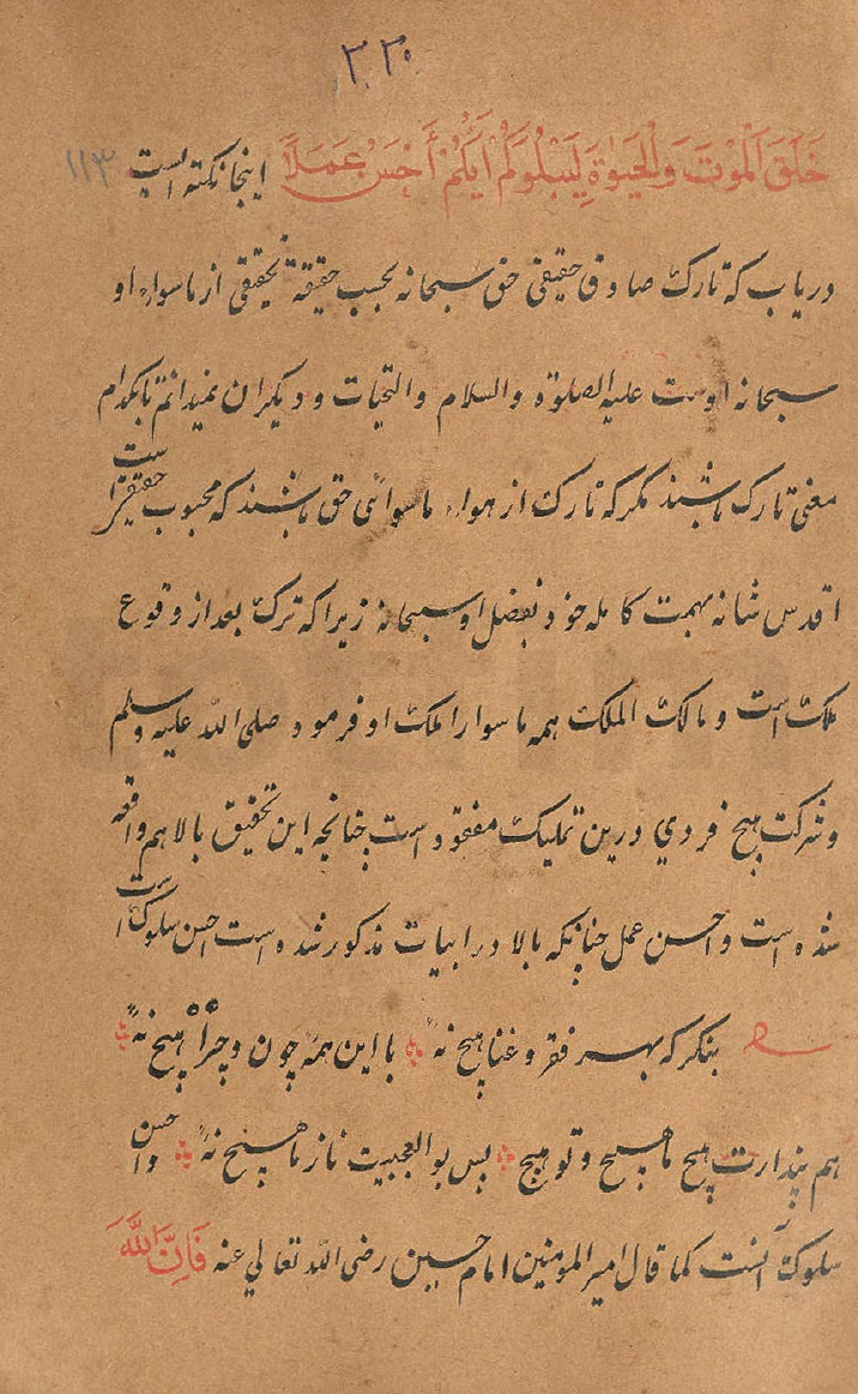 ۳۳۰
خَلَقَ الْمَوْتَ وَالْحَيٰوةَ لِيَبْلُوَكُمْ اَيُّكُمْ أَحْسَنُ عَمَلًا اینجا نکته است
۱۱۳
دریاب که تارک صادق حقیقی حق سبحانه بحسب حقیقة تحقیقی از ماسواء او
سبحانه اوست علیه الصلوة والسلام والتحیات و دیکران نمیدانم تا بکدام
معنی تارک باشند مکر که تارک از هواء ماسوائی حق باشند که محبوب حقیقیرا است
اقدس شانه بهمت کامله خود بفضل او سبحانه زیرا که ترک بعد از وقوع
ملک است و مالک الملک همه ماسوا را ملک او فرمود صلی الله علیه وسلم
و شرکت هیچ فردي درین تملیک مفقود است چنانچه این تحقیق بالا هم واقعه
شده است و احسن عمل چنانکه بالا در ابیات مذکور شده است احسن سلوک است
بنکر که بهر فقر و غنا هیچ نه با این همه چون و چرا هیچ نه
هم پندارت هیچ ما هیچ و تو هیچ بس بوالعجبیت ناز ما هیچ نه واحسن
سلوک آنست کما قال امیر المومنین امام حسین رضی الله تعالي عنه فَاِنَّ اللَّهَ